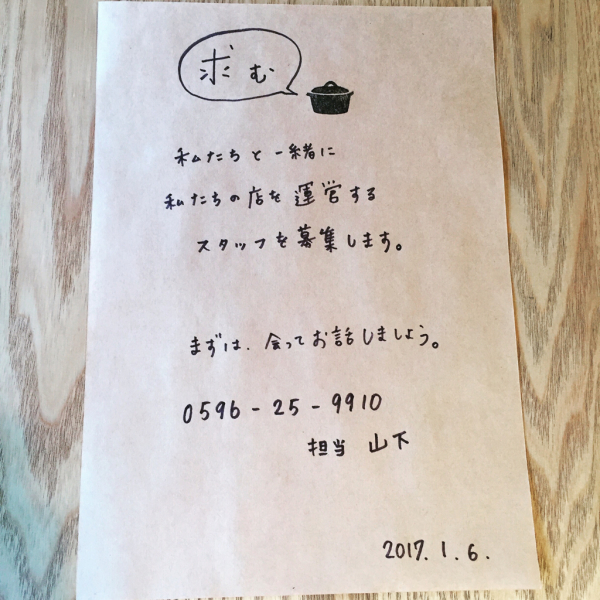 求む
私たちと一緒に
私たちの店を運営する
スタッフを募集します。
まずは、会ってお話しましょう。
0596-25-9910
担当 山下
2017.1.6.